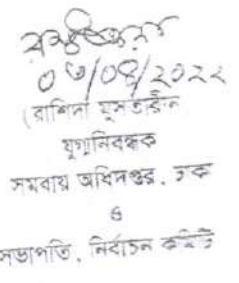 ০৩/০৪/২০২২
(রাশিদা মুসতারীন
যুগ্মনিবন্ধক
সমবায় অধিদপ্তর, ঢাকা
ও
সভাপতি, নির্বাচন কমিটি